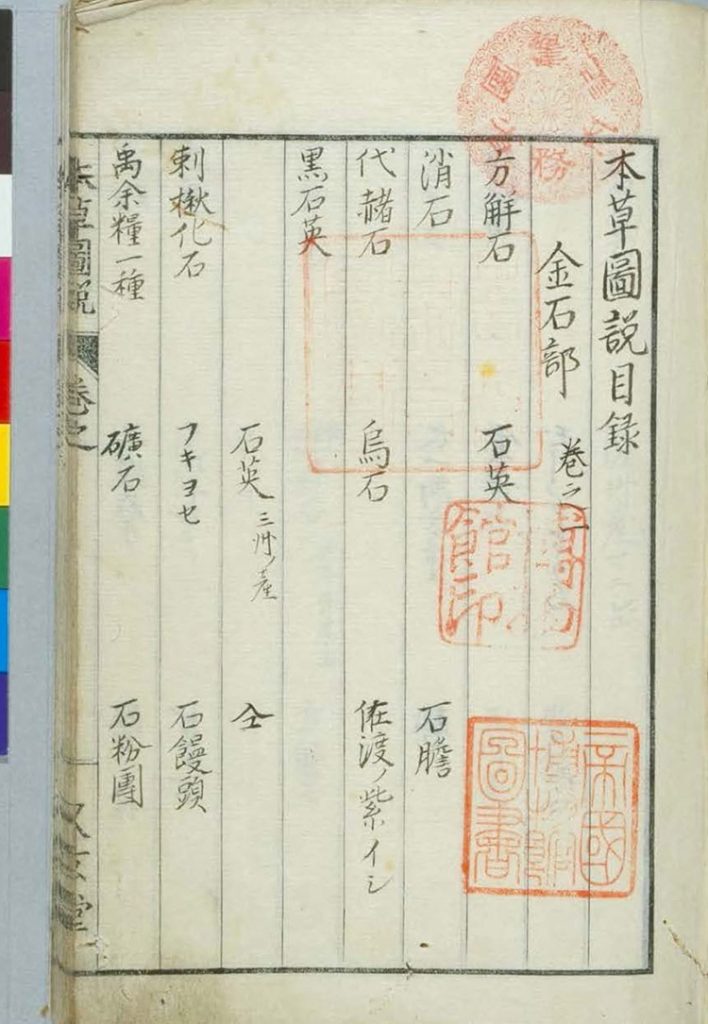 本草圖説目録
金石部 巻之一
方解石 石英
消石 石膽
代赭石 烏石 佐渡ノ紫イシ
黒石英
石英 三州ノ産 仝
刺楸化石 フキヨセ 石饅頭
禹余糧一種 礦石 石粉團
本草圖説 巻之
帝國
博物館
圖書
館印